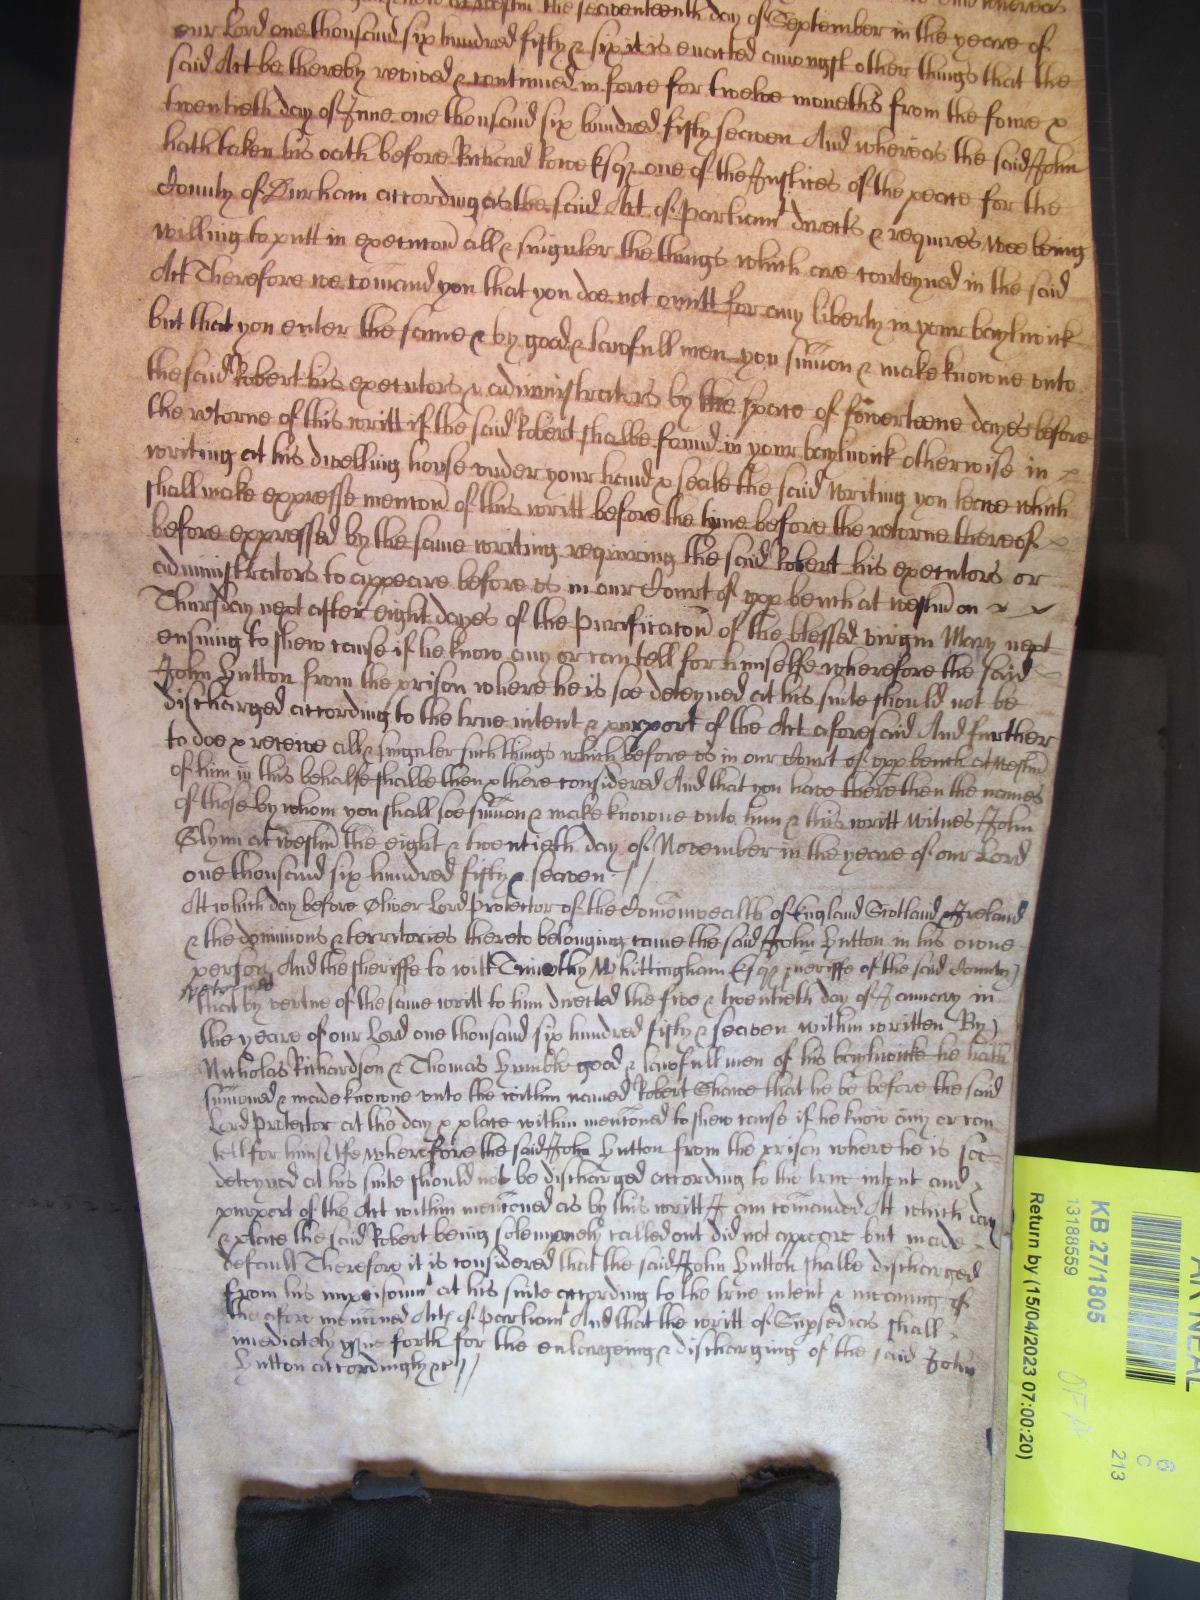 the seaventeenth day of September in the yeare of
our Lord one thousand six hundred fifty & six it is enacted amongst other things that the
said Act be thereby revived & continued in force for twelve moneths from the foure x
twentieth day of June one thousand six hundred fifty seaven And whereas the said John
hath taken his oath before Richard Rowe Esqr one of the Justices of the peace for the
County of Durham according as the said Act of Parliamt directs & requires wee being
willing to putt in execucon all & singuler the things which are conteyned in the said
Act Therefore we comand you that you doe not omitt for any liberty in your baylywick
but that you enter the same & by good & lawfull men you sumon & make knowne unto
the said Robert his executors & administrators by the space of fowerteene dayes before
the retorne of this writt if the said Robert shalbe found in your baylywick otherwise in
writing at his dwelling house under your hand & seale the said writing you leave which
shall make expresse mencon of this writt before the tyme before the retorne thereof
before expressed by the same writing requiring the said Robert his executors or
administrators to appeare before us in our Court of upp bench at Westm on
Thursday next after eight dayes of the Purificacon of the blessed virgin Mary next
ensuing to shew cause if he know any or can tell for himselfe wherefore the said
John Hutton from the prison where he is soe deteyned at his suite should not be
discharged according to the true intent & purport of the Act aforesaid And further
to doe & receive all & singuler such things which before us in our Court of upp bench at Westm
of him in this behalfe shalbe then & there considered And that you have there then the names
of those by whom you shall soe sumon & make knowne unto him & this writt Witnes John
Glynn at Westm the eight & twentieth day of November in the yeare of our Lord
one thousand six hundred fifty & seaven
Att which day before Oliver Lord Protector of the Comonwealth of England Scotland & Ireland
& the dominions & territories thereto belonging came the said John Hutton in his owne
person And the sheriffe to witt Timothy Whittingham Esqr sheriffe of the said County
retorned
that by vertue of the same writt to him directed the five & twentieth day of January in
the yeare of our Lord one thousand six hundred fifty & seaven within written By
Nicholas Richardson & Thomas Humble good & lawfull men of his baylywicke he hath
sumoned & made knowne unto the within named Robert Shawe that he be before the said
Lord Protector at the day & place within mencioned to shew cause if he know any or can
tell for himselfe wherefore the said John Hutton from the prison where he is soe
deteyned at his suite should not be discharged according to the true intent and
purport of the Act within mencioned as by this writt I am comanded Att which day
& place the said Robert being solempnely called out did not appeare but made
default Therefore it is considered that the said John Hutton shalbe discharged
from his imprisonmt at his suite according to the true intent & meaning of
the afore mencioned Act of Parliamt And that the writt of Supsedias shall
imediately yssue forth for the enlargeing & discharging of the said John
Hutton accordingly &c
KB 27/1805
13188559
Return by (15/04/2023 07:00:20)
6
C
213